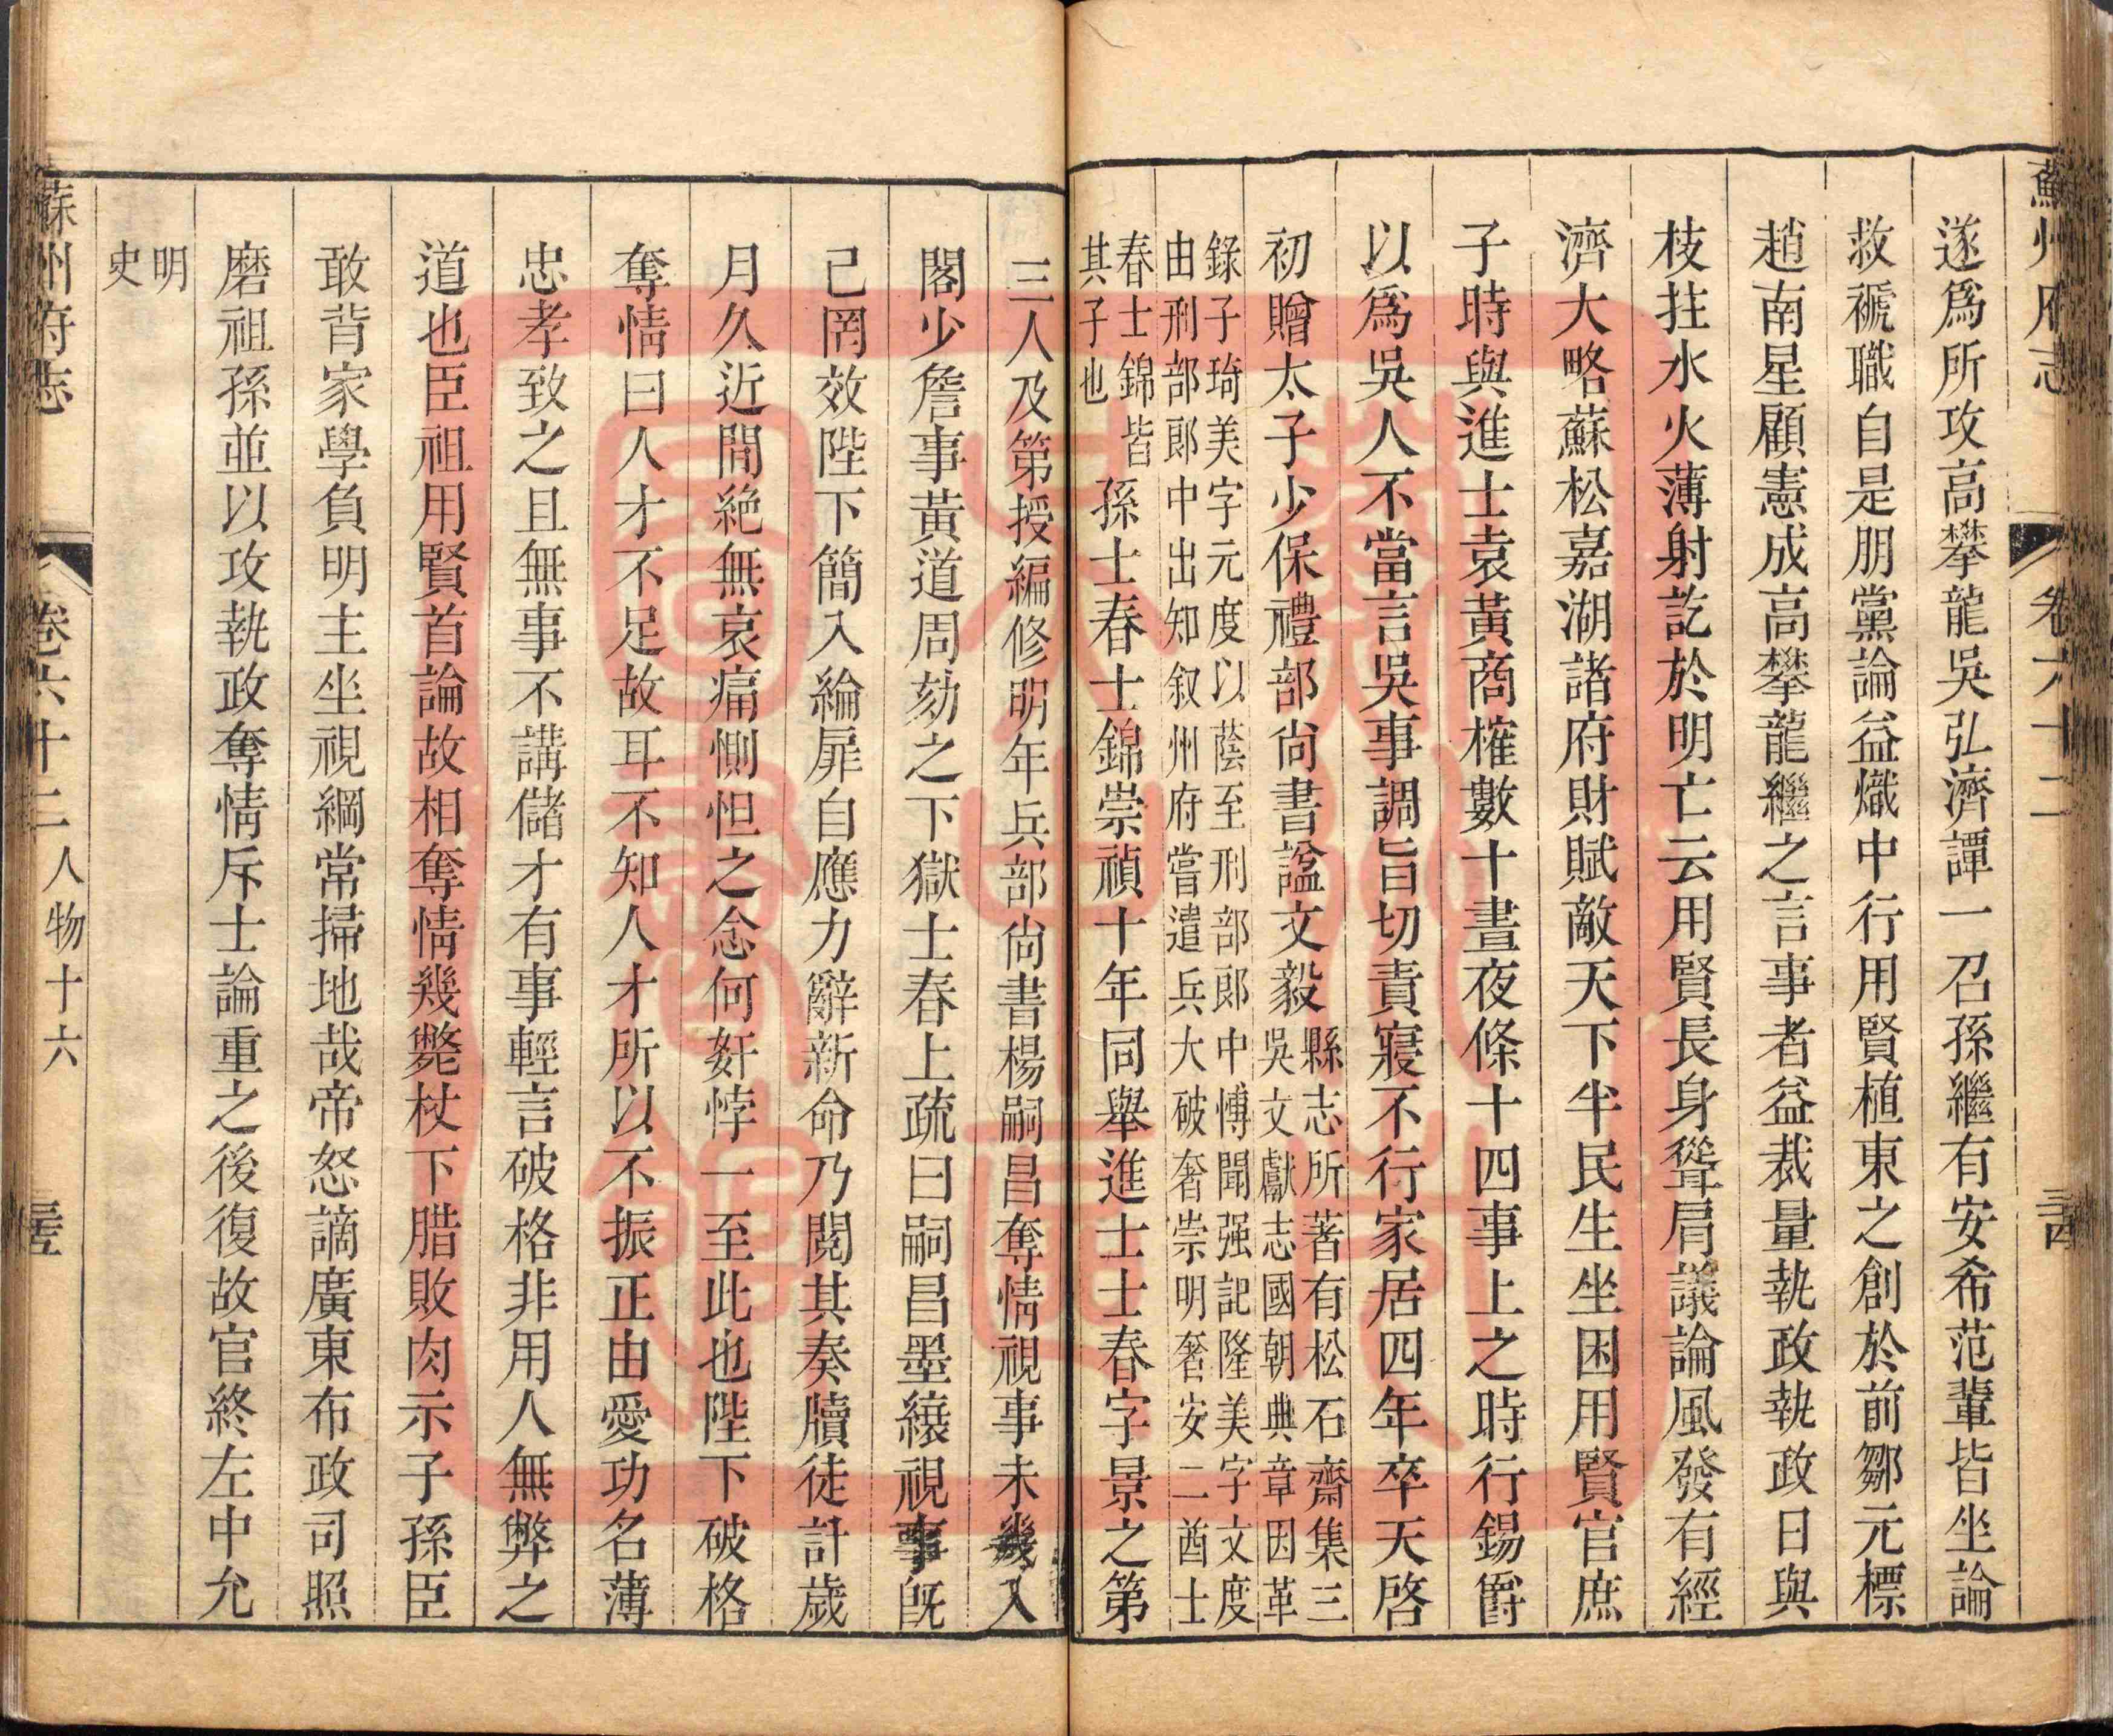 蘇州府志 卷六十二
遂爲所攻高攀龍吳弘濟譚一召孫繼有安希范輩皆坐論
救褫職自是朋黨論益熾中行用賢植東之創於前鄒元標
趙南星顧憲成高攀龍繼之言事者益裁量執政執政日與
枝拄水火薄射訖於明亡云用賢長身聳肩議論風發有經
濟大略蘇松嘉湖諸府財賦敵天下半民生坐困用賢官庶
子時與進士袁黃商榷數十晝夜條十四事上之時行錫爵
以爲吳人不當言吳事調旨切責寢不行家居四年卒天啓
初贈太子少保禮部尚書諡文毅
縣志所著有松石齋集三
吳文獻志國朝典章因革
錄子琦美字元度以蔭至刑部郎中博聞强記隆美字文度
由刑部郎中出知叙州府嘗遣兵大破奢崇明奢安二酋士
春士錦皆
其子也
孫士春士錦崇禎十年同舉進士士春字景之第
三人及第授編修明年兵部尚書楊嗣昌奪情視事未幾入
閣少詹事黃道周劾之下獄士春上疏曰嗣昌墨縗視事旣
已罔效陛下簡入綸扉自應力辭新命乃閱其奏牘徒計歲
月久近間絶無哀痛惻怛之念何奸悖一至此也陛下破格
奪情曰人才不足故耳不知人才所以不振正由愛功名薄
忠孝致之且無事不講儲才有事輕言破格非用人無弊之
道也臣祖用賢首論故相奪情幾斃杖下腊敗肉示子孫臣
敢背家學負明主坐視綱常掃地哉帝怒謫廣東布政司照
磨祖孫並以攻執政奪情斥士論重之後復故官終左中允
明
史
蘇州府志 卷六十二 人物十六